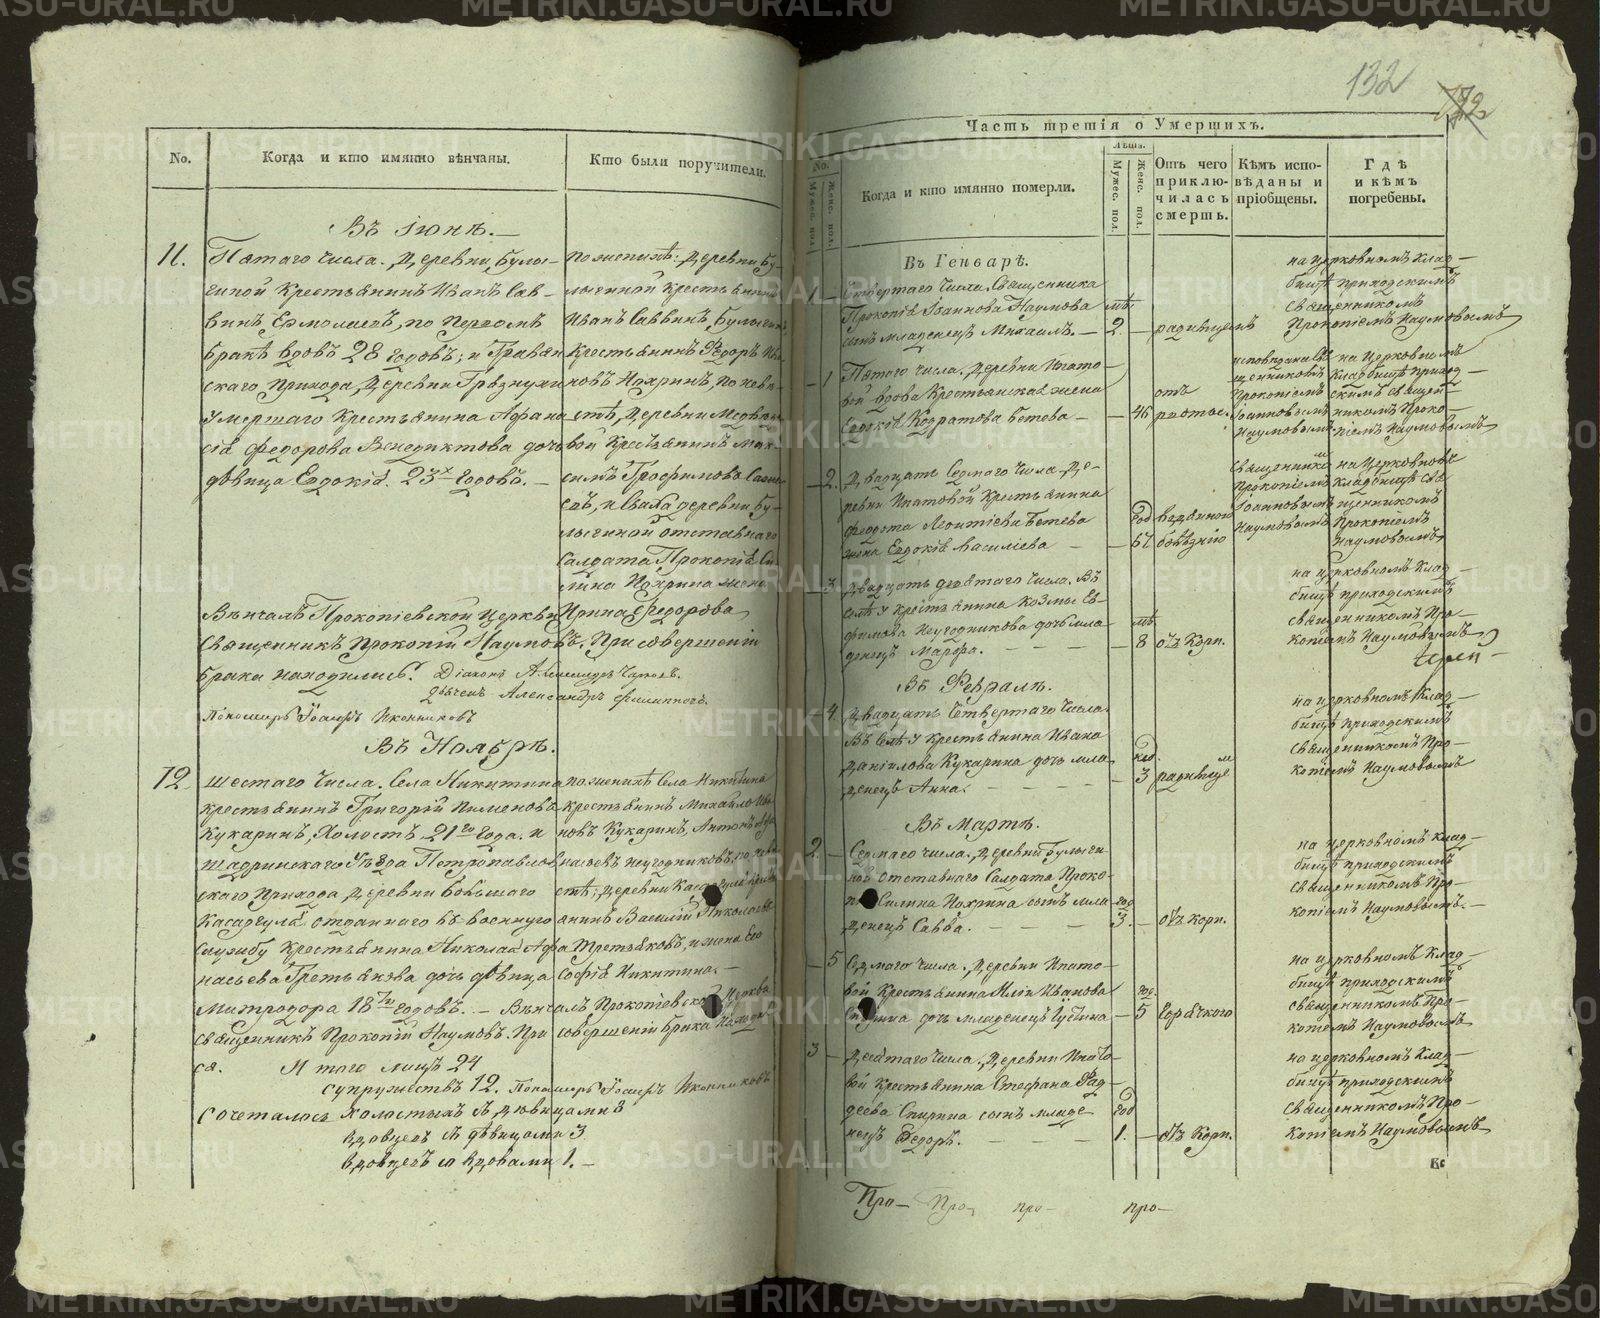 132
Часть третія о Умершихъ.
No.
Когда и кто имянно вѣнчаны.
Кто были поручители.
Въ Іюнѣ.
11.
Пятаго числа. Деревни Булы-
гиной Крестьянинъ Иванъ Сав-
винъ Ермолаевъ, по первомъ
бракѣ вдовъ 28 годовъ; и Травян
скаго прихода, Деревни Грязнухи
умершаго Крестьянина Афана
сія Федорова Венедиктова дочь
дѣвица Евдокія. 23х годовъ. —
По женихѣ: Деревни Бу-
лыгиной Крестьянинъ
Иванъ Саввинъ Булыгинъ
Крестьянинъ Федоръ Ива
новъ Нохринъ, по невѣ-
стѣ, Деревни
вой Крестьянинъ Мак-
симъ Трофимова
евъ, и сваха деревни Бу-
лыгиной отставнаго
Солдата Прокопія Си-
лина Нохрина жена
Ирина Федорова
Вѣнчалъ Прокопіевской церкви
Священникъ Прокопій Наумовъ. При совершеніи
брака находились. Діаконъ
дьячекъ Александръ
Пономарь Іосифъ Иконниковъ
Въ Ноябрѣ.
12
Шестаго числа. Села Никитина
крестьянинъ Григорій Пименова
Кукаринъ, холостъ 21го года. и
Шадринскаго уѣзда Петропавлов
скаго Прихода, Деревни Большаго
Касаргула отданнаго въ военную
службу Крестьянина Николая Афа
насьева Третьякова дочь дѣвица
Митродора 18ти годовъ. — Вѣнчалъ Прокопіевской Церкви
священникъ Прокопій Наумовъ. При совершеніи брака находил
ся.
по женихѣ Села Никитина
крестьянинъ Михайло Ива
новъ Кукаринъ, Антонъ
насьевъ Неугодниковъ, по невѣ
стѣ; деревни Касаргула крестья
нинъ Василій Николаевъ
Третьяковъ, и жена Его
Софія Никитина. —
И того лицъ 24
супружествъ 12. Пономарь Іосифъ Иконниковъ
Сочеталось холостыхъ съ дѣвицами 8
вдовцевъ съ дѣвицами 3
вдовцевъ со вдовами 1. —
No.
Мужес. пол.
Женс. пол.
Когда и кто имянно померли.
Лѣта.
Мужес. пол.
Женс. пол.
Отъ чего приклю-чилась смерть.
Кѣмъ испо-вѣданы и пріобщены.
Гдѣ и кѣмъ погребены.
Въ Генварѣ.
1 —
Четвертаго числа. Священника
Прокопія Іоаннова Наумова
сынъ младенецъ Михаилъ. —
2 —
родимцемъ
на церковномъ клад-
бищѣ приходскимъ
священникомъ
Прокопіемъ Наумовымъ
— 1
Пятаго числа. Деревни Ипато-
вой вдова Крестьянская жена
Евдокія Кодратова Бетева —
— 46
отъ
рвоты.
исповѣдана свя
щенникомъ
Прокопіемъ
Іоанновымъ
Наумовымъ
на Церковномъ
кладбищѣ приход-
скимъ священ-
никомъ Проко-
піемъ Наумовымъ
— 2.
Двадцать Седмаго числа. Де-
ревни Ипатовой Крестьянина
Федота Леонтіева Бетева
жена Евдокія Василіева —
год
— 67
болѣзнію
Священником
Прокопіемъ
Іоанновымъ
Наумовымъ
на Церковном
кладбищѣ свя
щенникомъ
Прокопіемъ
Наумовымъ
— 3
Двадцать девятаго числа. Въ
селѣ у крестьянина Козмы Еф-
фимова Неугодникова дочь мла-
денецъ Марфа. —
— 8
отъ Корп.
на церковномъ клад-
бищѣ приходскимъ
священникомъ Про-
копіемъ Наумовымъ
Въ Февралѣ.
— 4.
Двадцать Четвертаго числа.
Въ селѣ у крестьянина Ивана
Даніилова Кукарина дочь мла-
денецъ Анна. —
нед.
— 3
родимцем
на церковномъ клад-
бищѣ приходскимъ
священникомъ Про-
копіемъ Наумовымъ
Въ Мартѣ.
2. —
Седмаго числа. Деревни Булыги-
ной отставнаго Солдата Проко-
пія Силина Нохрина сынъ мла-
денецъ Савва. —
год
3. —
отъ корп.
на церковномъ клад-
бищѣ приходскимъ
священникомъ Про-
копіемъ Наумовымъ. —
— 5
Седмаго числа. Деревни Ипато-
вой Крестьянина Иліи Иванова
Спирина дочь младенецъ Іустина
год.
— 5
Горячкою
на церковномъ клад-
бищѣ приходскимъ
священникомъ Про-
копіемъ Наумовымъ
3 —
Десятаго числа. Деревни Ипато-
вой крестьянина Стефана Фад-
деева Спирина сынъ младе
нецъ Федоръ. —
год
1. —
отъ Корп.
на церковномъ клад-
бищѣ приходскимъ
священникомъ Про-
копіемъ Наумовымъ
Про— Про— про— про—
METRIKI.GASO-URAL.RU